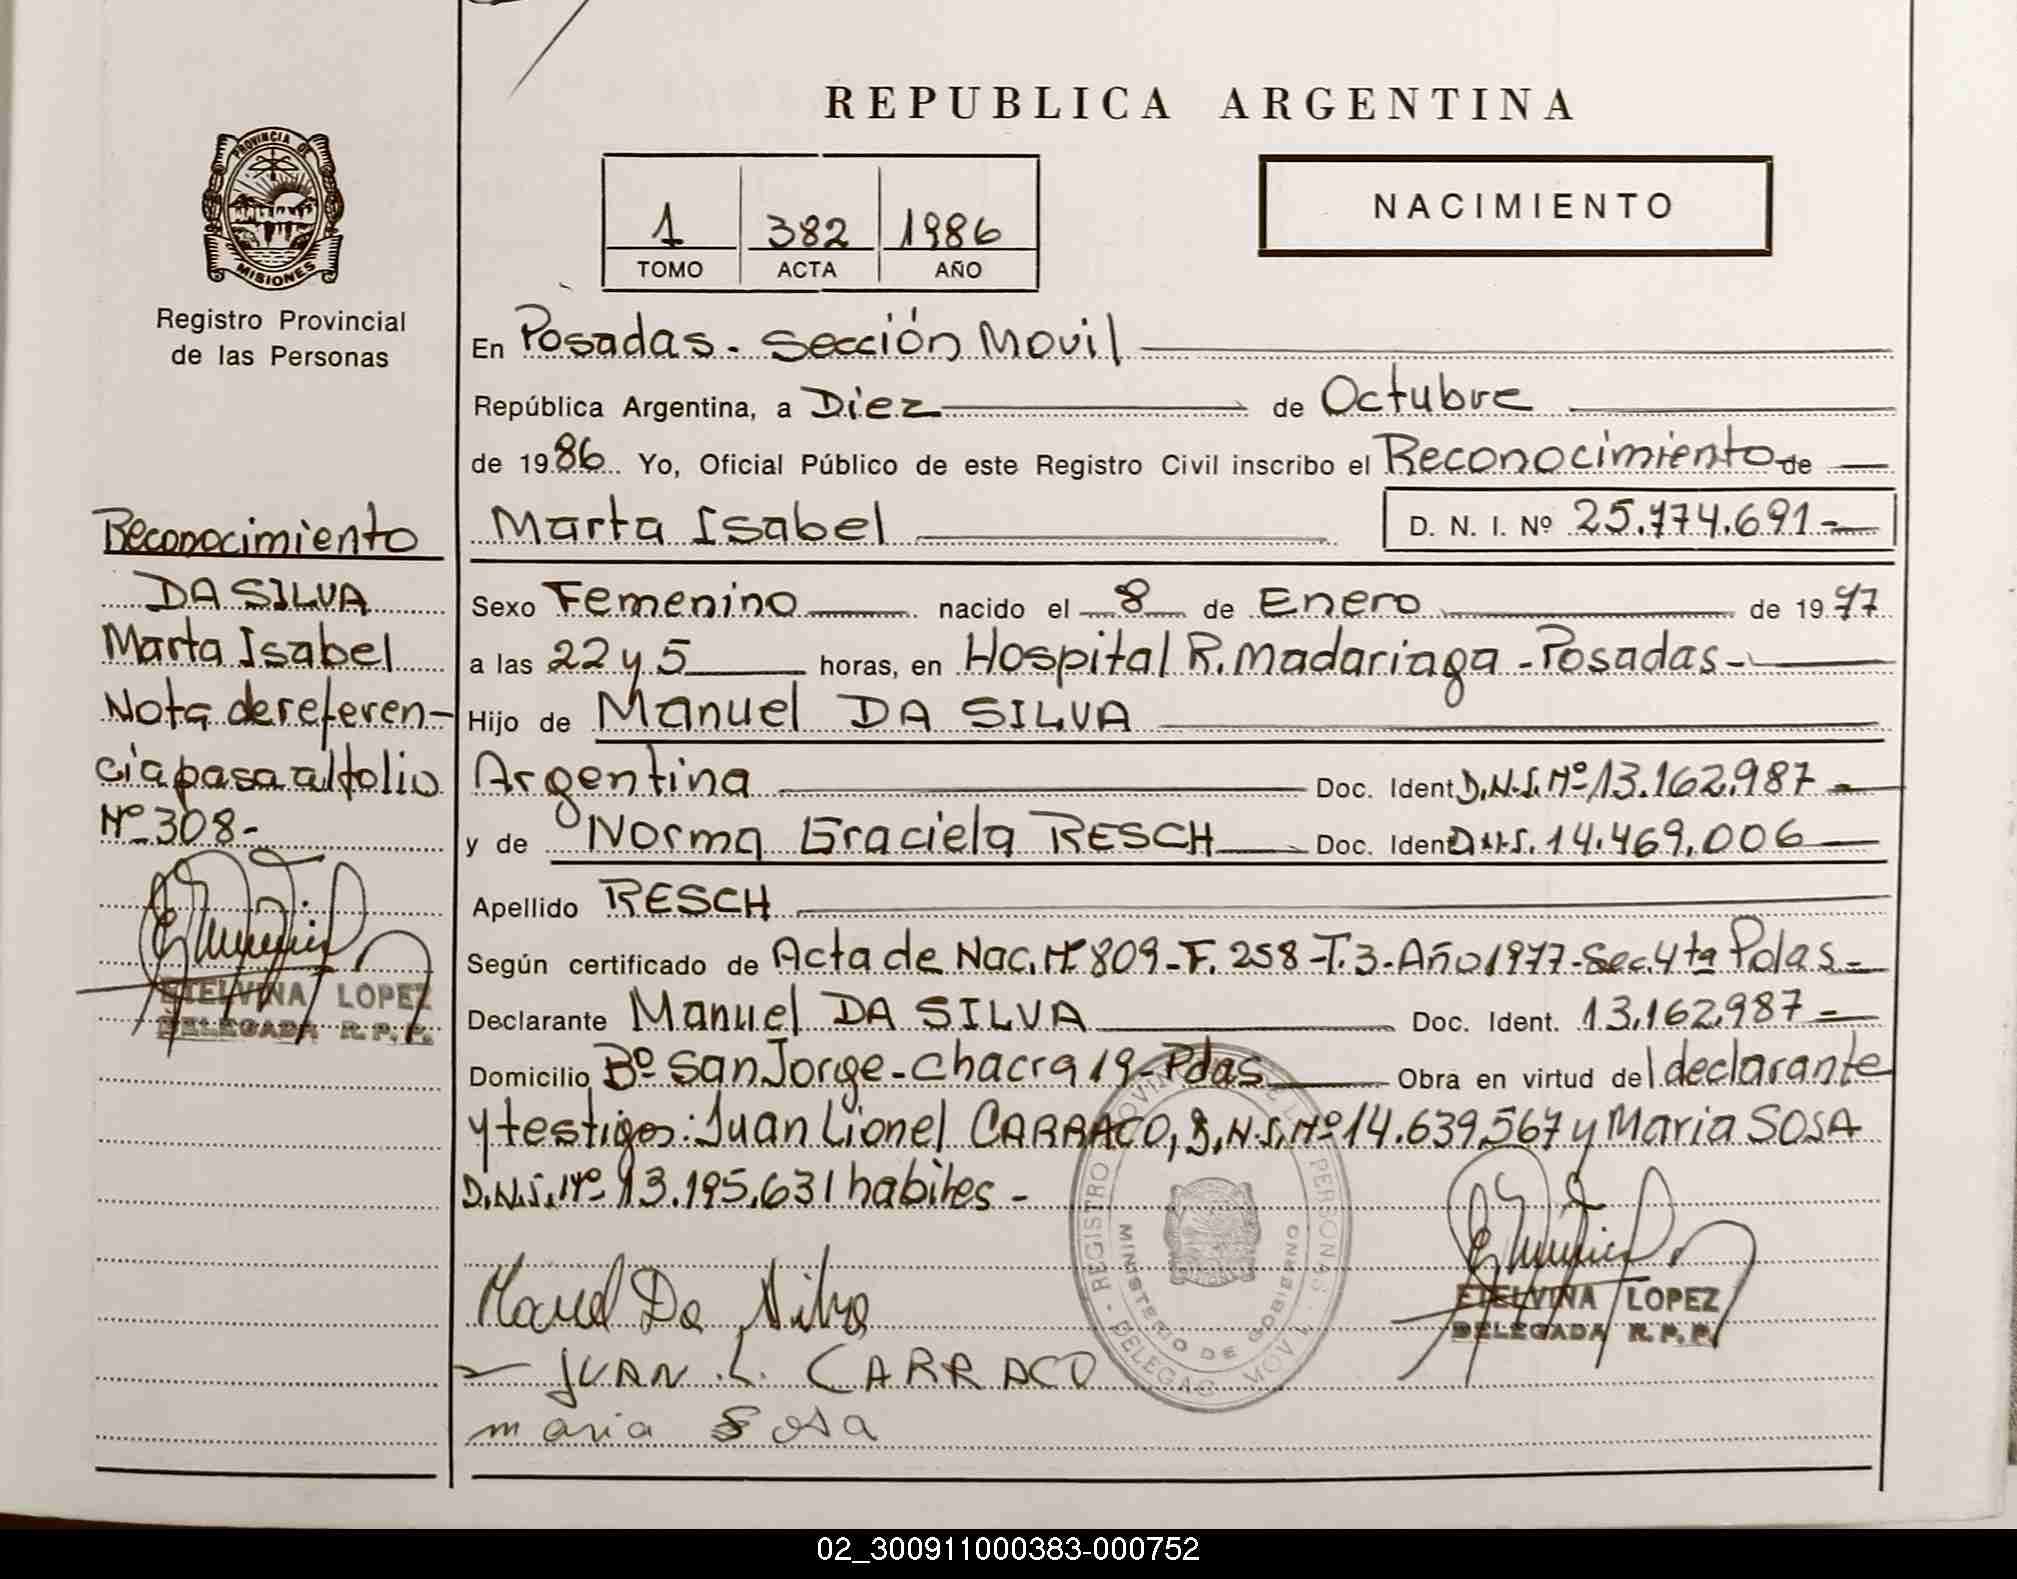 REPUBLICA ARGENTINA
PROVINCIA DE
MISIONES
Registro Provincial
de las Personas
1 382 1986
TOMO ACTA AÑO
NACIMIENTO
En Posadas - Sección Movil
República Argentina, a Diez de Octubre
de 1986 Yo, Oficial Público de este Registro Civil inscribo el Reconocimiento de
Marta Isabel D. N. I. Nº 25.774.691-
Sexo Femenino nacido el 8 de Enero de 1977
a las 22 y 5 horas, en Hospital R. Madariaga - Posadas -
Hijo de Manuel DA SILVA
Argentina Doc. Ident D.N.I. Nº 13.162.987-
y de Norma Graciela RESCH Doc. Ident D.N.I. 14.469.006
Apellido RESCH
Según certificado de Acta de Nac. Nº 809 - F. 258 - T. 3 - Año 1977 - Sec. 4ta Pdas -
Declarante Manuel DA SILVA Doc. Ident. 13.162.987-
Domicilio Bº San Jorge - chacra 19 - Pdas Obra en virtud del declarante
y testigos: Juan Lionel CARRACO, D.N.I. Nº 14.639.567 y Maria SOSA
D.N.I. Nº 13.195.631 habiles -
Manuel Da Silva
JUAN L. CARRACO
maria Sosa
ETELVINA LOPEZ
DELEGADA R. P. P.
REGISTRO PROVINCIAL DE LAS PERSONAS
MINISTERIO DE GOBIERNO
Reconocimiento
DA SILVA
Marta Isabel
Nota de referen-
cia pasa al folio
Nº 308-
ETELVINA LOPEZ
DELEGADA R. P. P.
02_300911000383-000752